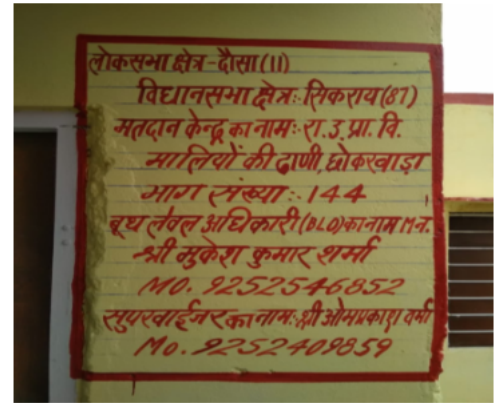 लोकसभा क्षेत्र-दौसा(11)
विधानसभा क्षेत्र:-सिकराय(87)
मतदान केन्द्र का नाम:-रा.उ.प्रा.वि.
मालियों की ढाणी,छोकरवाड़ा
भाग संख्या:-144
बूथ लेवल अधिकारी(BLO)का नाम M.न.
श्री मुकेश कुमार शर्मा
MO. 9252546852
सुपरवाईजर का नाम:-श्री ओमप्रकाश वर्मा
Mo. 9252409859